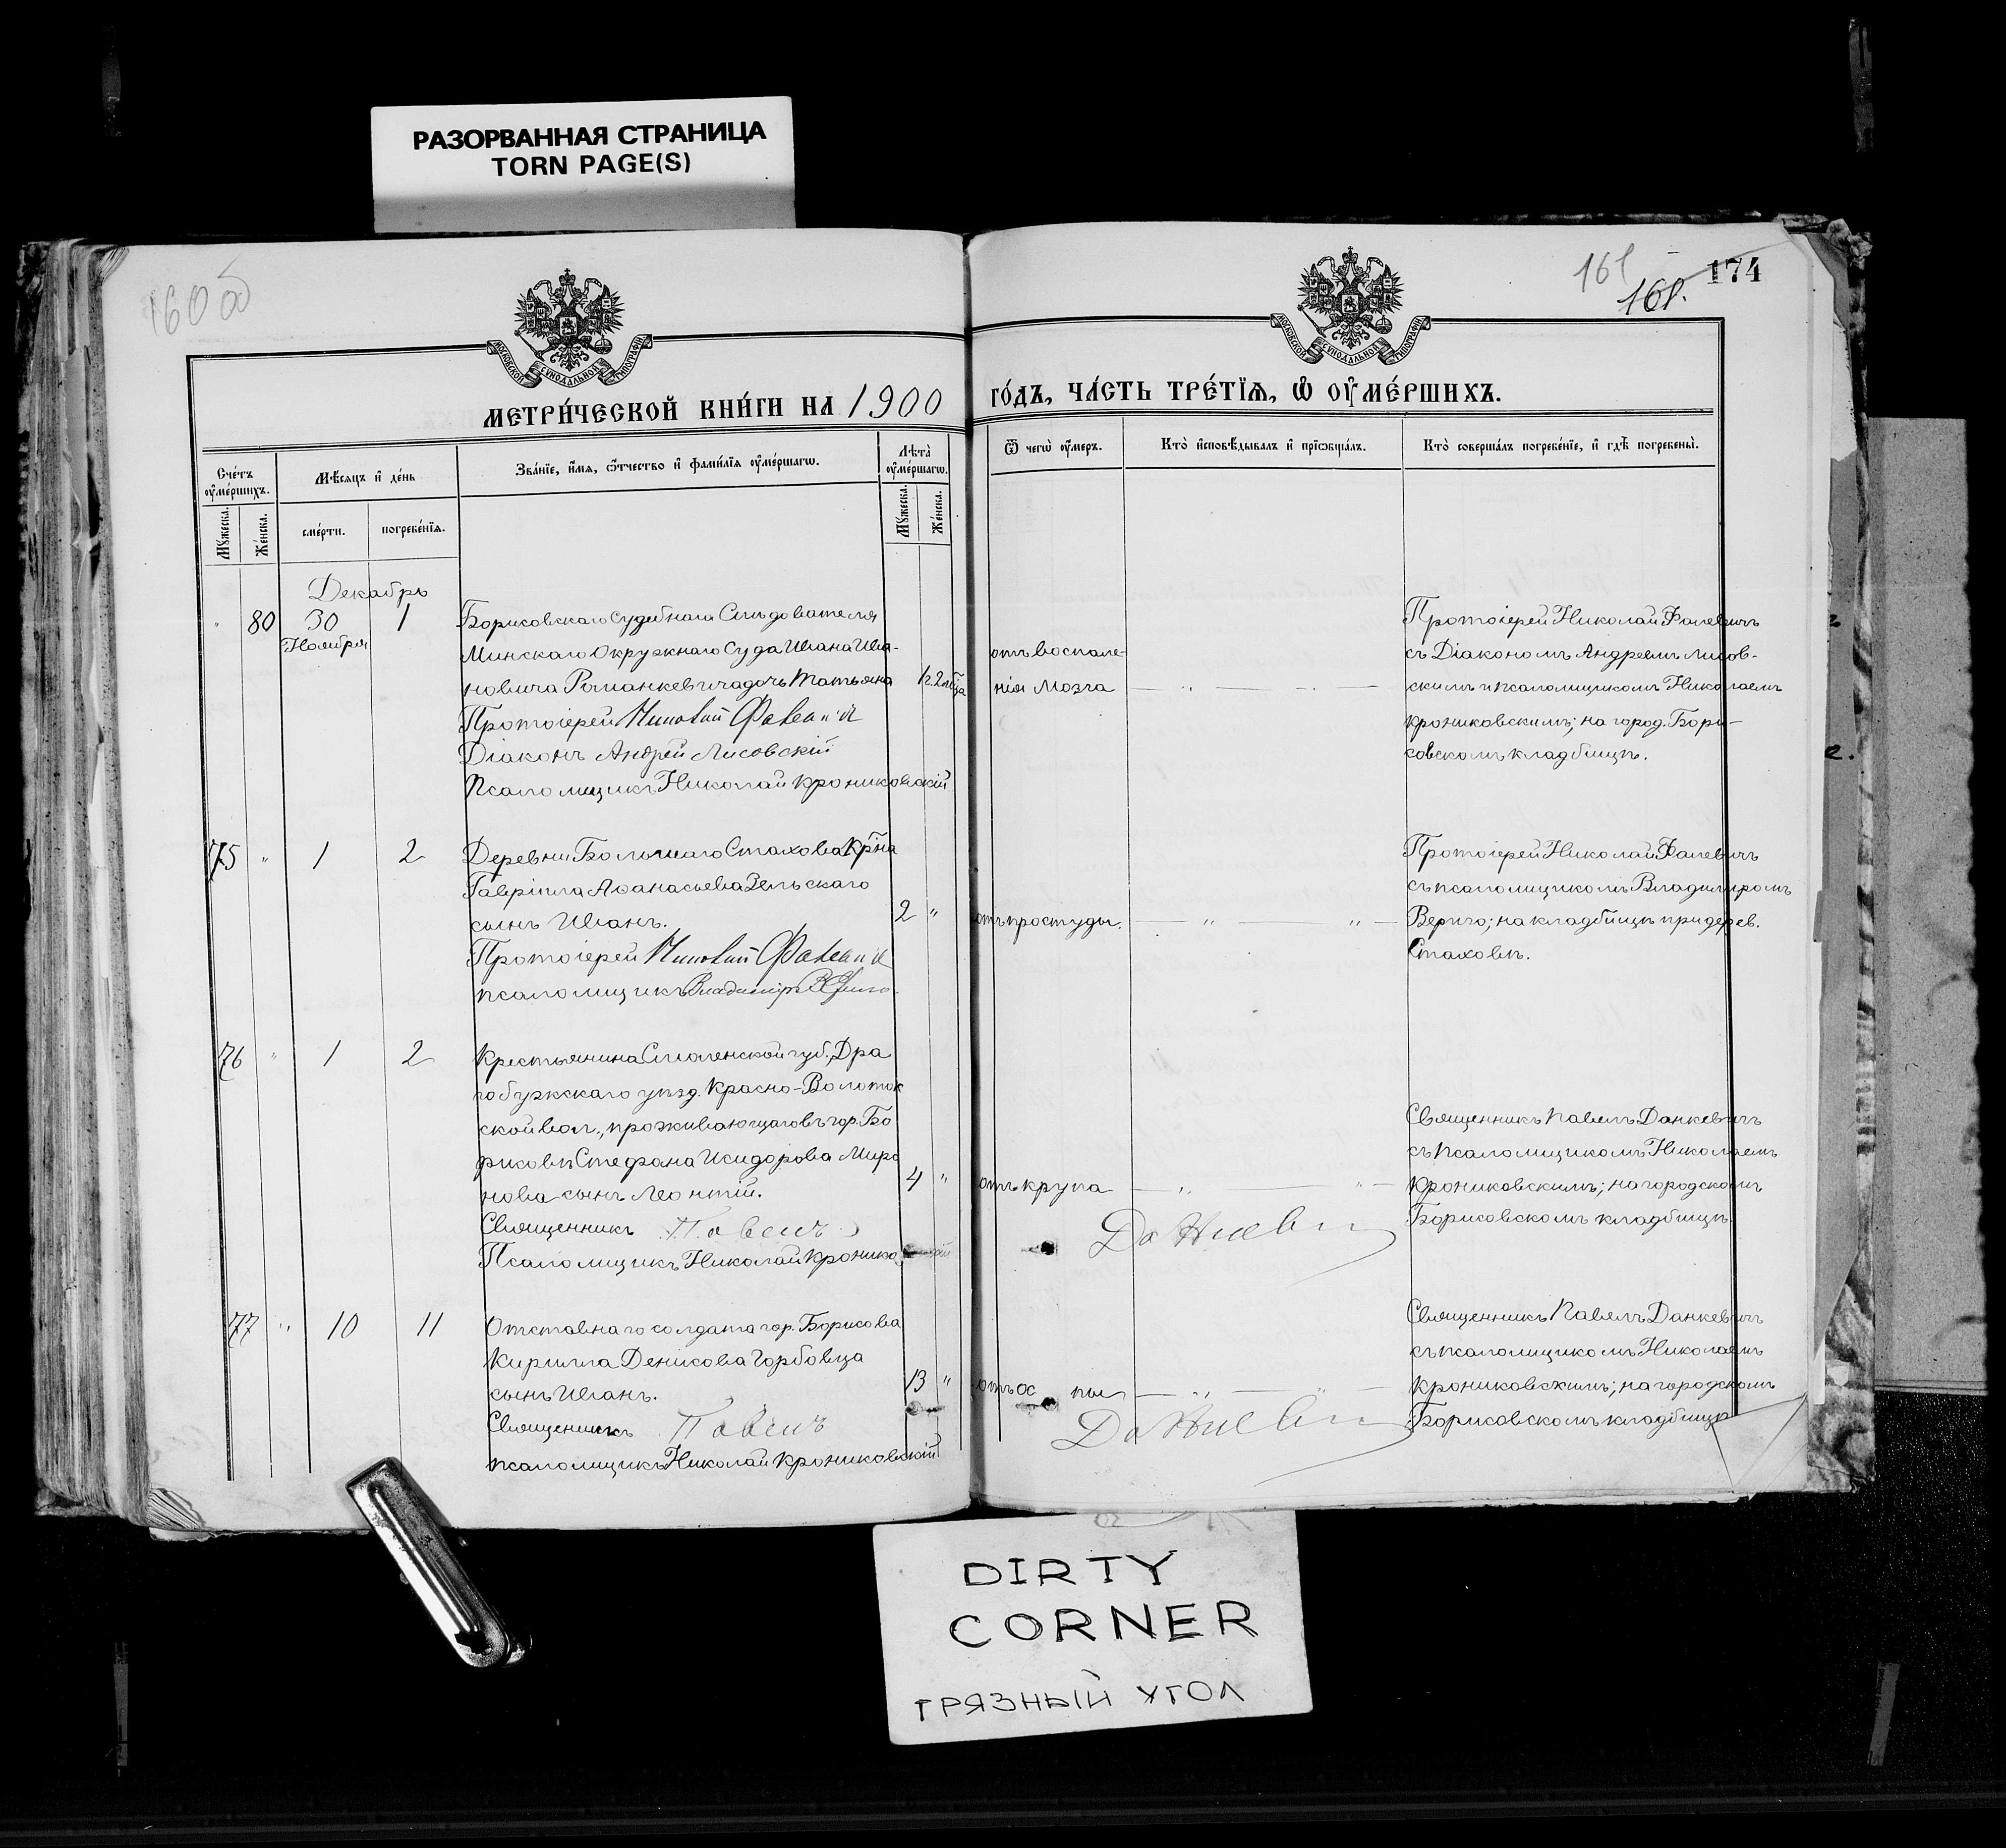 РАЗОРВАННАЯ СТРАНИЦА
TORN PAGE(S)
160 об
161
161.
174
МОСКОВСКОЙ СѴНОДАЛЬНОЙ ТИПОГРАФІИ
МОСКОВСКОЙ СѴНОДАЛЬНОЙ ТИПОГРАФІИ
МЕТРИ́ЧЕСКОЙ КНИ́ГИ НА 1900
ГО́ДЪ, ЧА́СТЬ ТРЕ́ТЇѦ, Ѡ҆ ОУ҆МЕ́РШИХЪ.
Сче́тъ оу҆ме́ршихъ.
Мѣ́сяцъ и҆ де́нь
Зва́нїе, и҆́мѧ, ѻ҆́тчество и҆ фамилїѧ оу҆ме́ршагѡ.
Лѣ́та̀ оу҆ме́ршагѡ.
Ѿ чегѡ̀ оу҆́меръ.
Кто̀ и҆сповѣ́дывалъ и҆ прїѡбща́лъ.
Кто̀ соверша́лъ погребе́нїе, и҆ гдѣ̀ погребены̀.
Мꙋ́жеска.
Же́нска.
сме́рти.
погребе́нїѧ.
Мꙋ́жеска.
Же́нска.
Декабрь
" 80 30 1
Ноября
Борисовскаго Судебнаго Слѣдователя
Минскаго Окружнаго Суда Ивана Ива-
новича Романкевича дочь Татьяна
Протоіерей Николай Фалевичъ
Діаконъ Андрей Лисовскій
Псаломщикъ Николай Крониковскій
1 г. 2 мѣсца
отъ воспале-
нія мозга
Протоіерей Николай Фалевичъ
съ Діакономъ Андреемъ Лисов-
скимъ и псаломщикомъ Николаемъ
Крониковскимъ; на город. Бори-
совскомъ кладбищѣ.
75 " 1 2
Деревни Большаго Стахова Кр-на
Гавріила Аѳанасьева Зельскаго
сынъ Иванъ.
Протоіерей Николай Фалевичъ
псаломщикъ Владиміръ Вериго
2 "
отъ простуды.
Протоіерей Николай Фалевичъ
съ псаломщикомъ Владиміромъ
Вериго; на кладбищѣ при дерев.
Стаховѣ.
76 " 1 2
Крестьянина Смоленской губ., Дра
гобужскаго уѣзд. Красно-Волоток
ской вол., проживающаго въ гор. Бо
рисовѣ Стефана Исидорова Миро
нова сынъ Леонтій.
Священникъ Павелъ
Данкевичъ
Псаломщикъ Николай Кронико
4 "
отъ крупа
Священникъ Павелъ Данкевичъ
съ псаломщикомъ Николаемъ
Крониковскимъ; на городскомъ
Борисовскомъ кладбищѣ.
77 " 10 11
Отставнаго солдата гор. Борисова
Кирилла Денисова Горбовца
сынъ Иванъ.
Священникъ Павелъ
Данкевичъ
псаломщикъ Николай Крониковскій
13 "
отъ ос пы
Священникъ Павелъ Данкевичъ
съ псаломщикомъ Николаемъ
Крониковскимъ; на городскомъ
Борисовскомъ кладбищѣ
DIRTY
CORNER
ГРЯЗНЫЙ УГОЛ